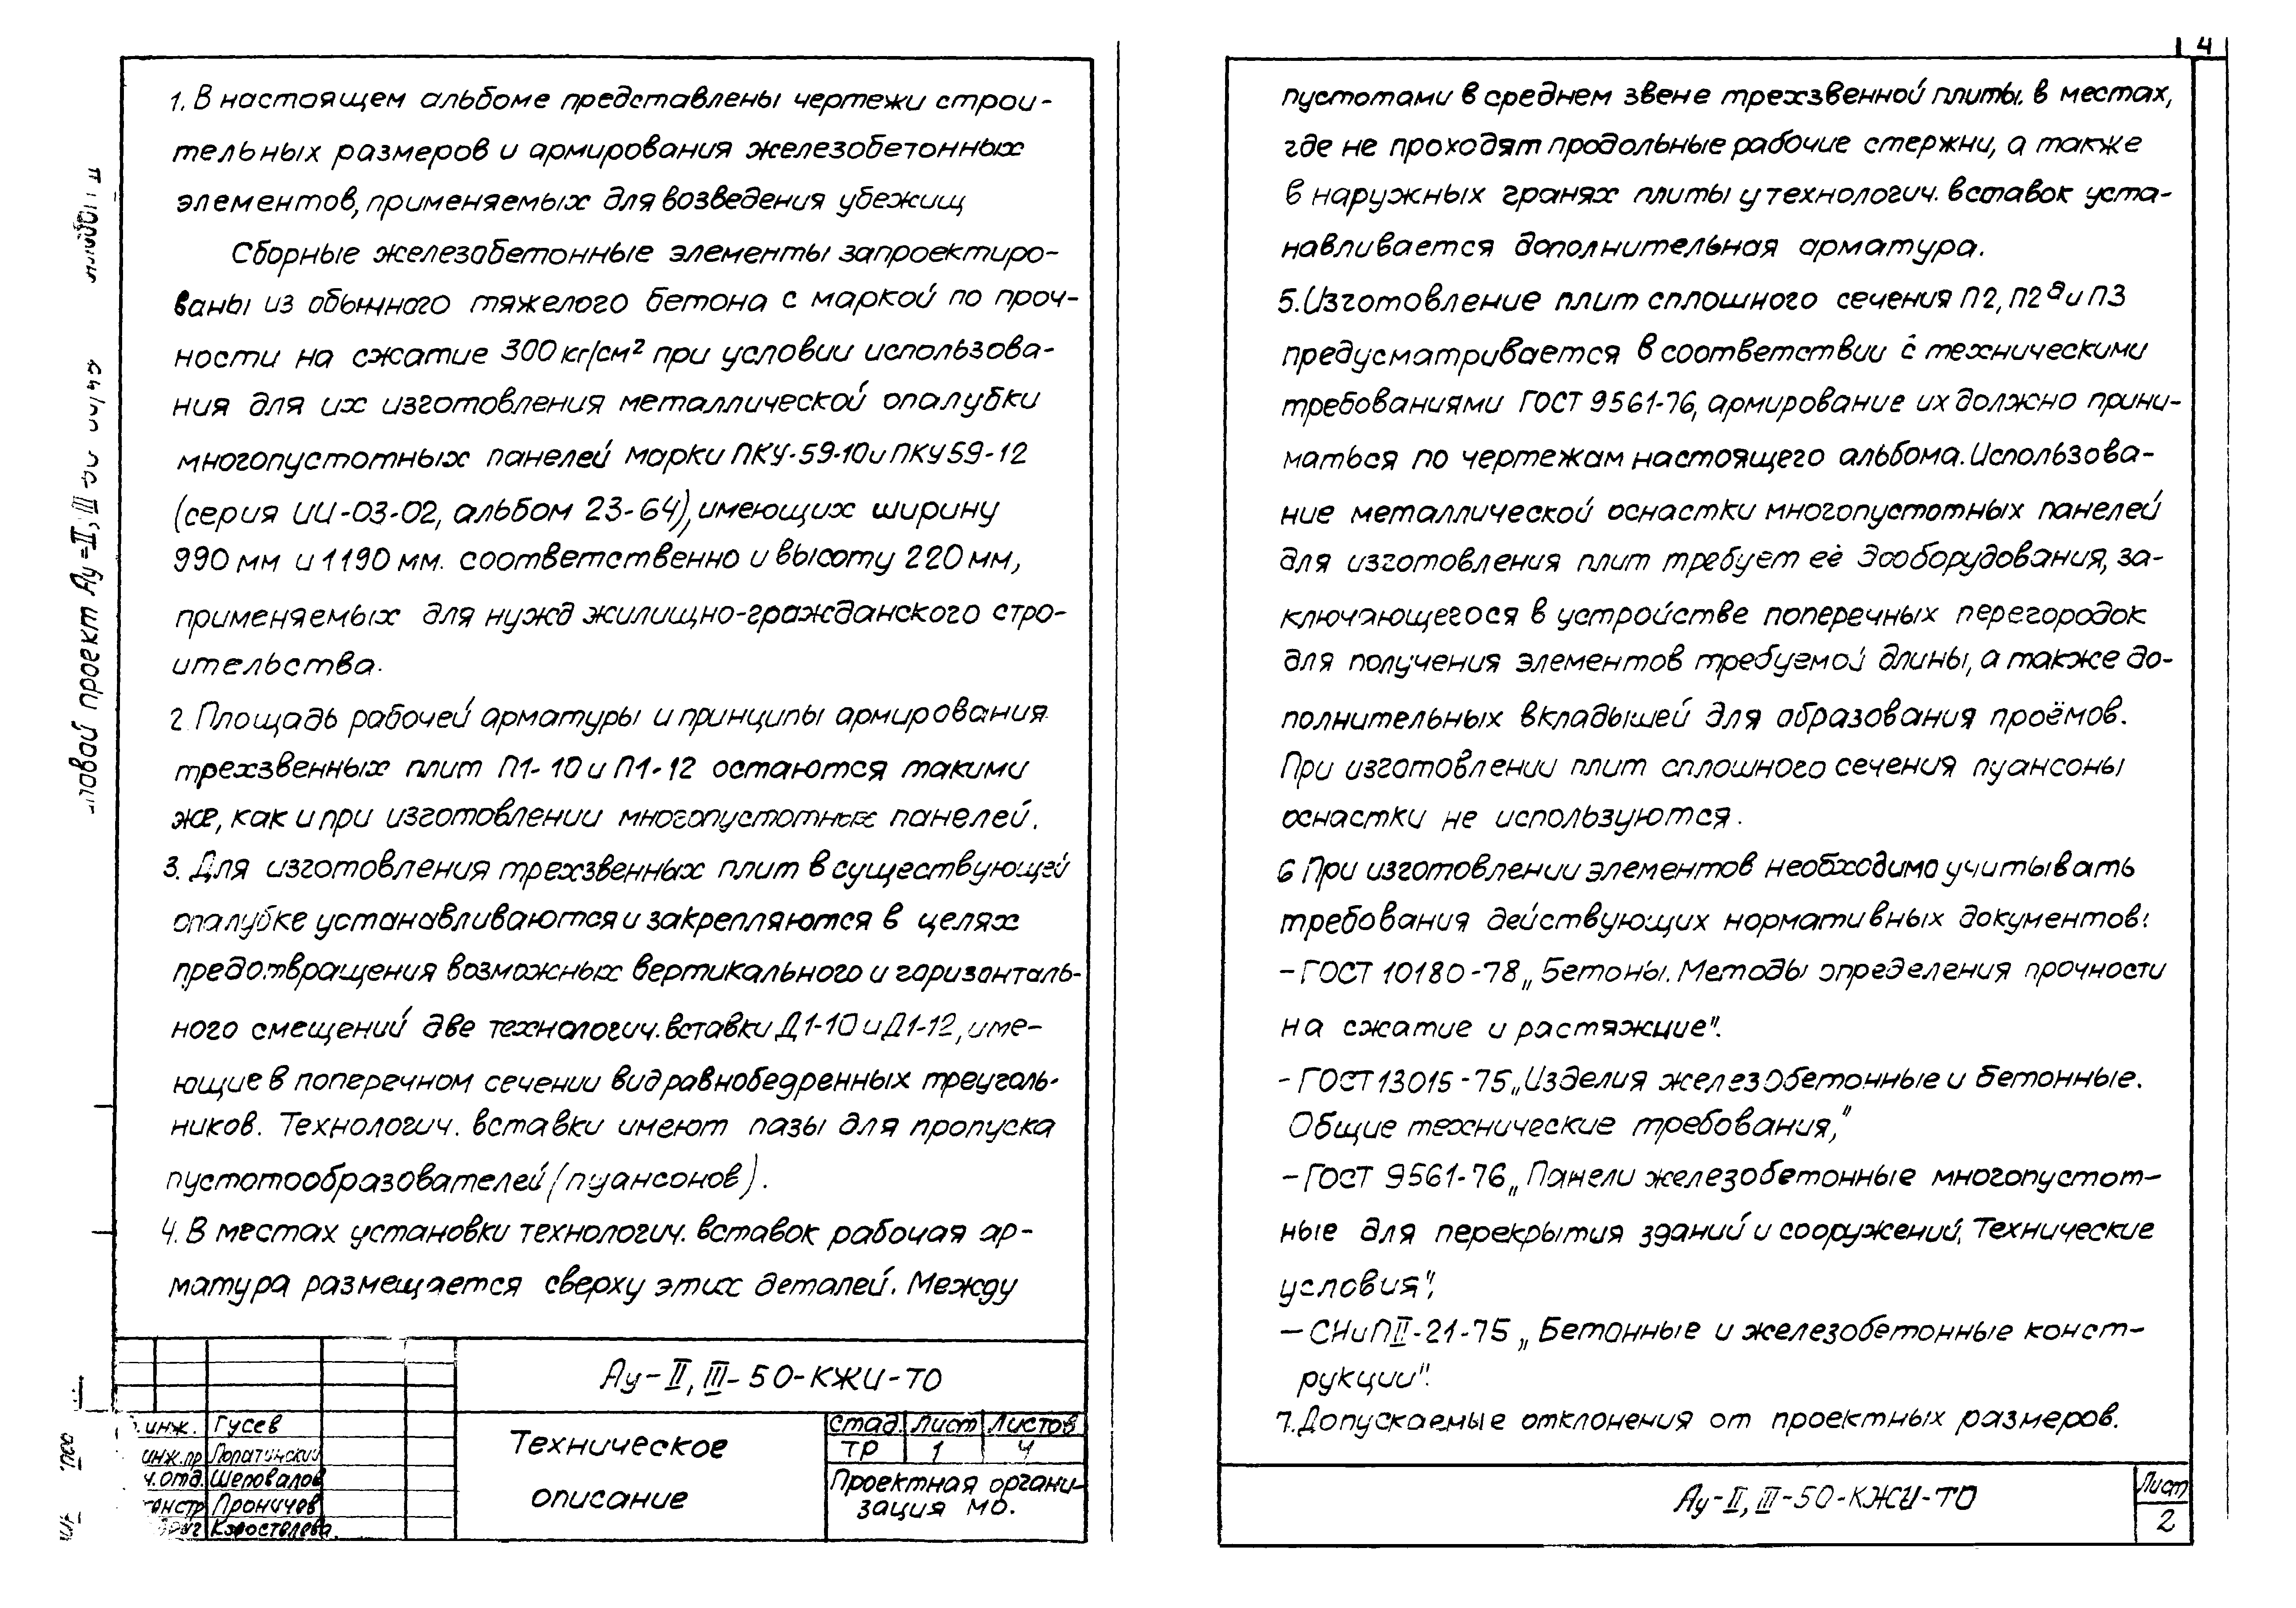 1. В настоящем альбоме представлены чертежи строи-
тельных размеров и армирования железобетонных
элементов, применяемых для возведения убежищ
Сборные железобетонные элементы запроектиро-
ваны из обычного тяжелого бетона с маркой по проч-
ности на сжатие 300 кг/см² при условии использова-
ния для их изготовления металлической опалубки
многопустотных панелей марки ПКУ-59-10 и ПКУ59-12
(серия ИИ-03-02, альбом 23-64), имеющих ширину
990 мм и 1190 мм. соответственно и высоту 220 мм,
применяемых для нужд жилищно-гражданского стро-
ительства.
2. Площадь рабочей арматуры и принципы армирования
трехзвенных плит П1-10 и П1-12 остаются такими
же, как и при изготовлении многопустотных панелей.
3. Для изготовления трехзвенных плит в существующей
опалубке устанавливаются и закрепляются в целях
предотвращения возможных вертикального и горизонталь-
ного смещений две технологич. вставки Д1-10 и Д1-12, име-
ющие в поперечном сечении вид равнобедренных треуголь-
ников. Технологич. вставки имеют пазы для пропуска
пустотообразователей (пуансонов).
4. В местах установки технологич. вставок рабочая ар-
матура размещается сверху этих деталей. Между
Ау-II, III-50-КЖИ-ТО
инж. Гусев
инж.пр
ч. отд. Шеровалов
констр Проничев
Коростелева.
Техническое
описание
Стад. Лист Листов
ТР 1 4
Проектная органи-
зация МО.
повой проект Ау-II, III
4
пустотами в среднем звене трехзвенной плиты. в местах,
где не проходят продольные рабочие стержни, а также
в наружных гранях плиты у технологич. вставок уста-
навливается дополнительная арматура.
5. Изготовление плит сплошного сечения П2, П2а и П3
предусматривается в соответствии с техническими
требованиями ГОСТ 9561-76, армирование их должно прини-
маться по чертежам настоящего альбома. Использова-
ние металлической оснастки многопустотных панелей
для изготовления плит требует её дооборудования, за-
ключающегося в устройстве поперечных перегородок
для получения элементов требуемой длины, а также до-
полнительных вкладышей для образования проёмов.
При изготовлении плит сплошного сечения пуансоны
оснастки не используются.
6 При изготовлении элементов необходимо учитывать
требования действующих нормативных документов:
-ГОСТ 10180-78 „Бетоны. Методы определения прочности
на сжатие и растяжцие".
-ГОСТ 13015-75 „Изделия железобетонные и бетонные.
Общие технические требования",
-ГОСТ 9561-76 „Панели железобетонные многопустот-
ные для перекрытия зданий и сооружений. Технические
условия",
- СНиП II-21-75 „Бетонные и железобетонные конст-
рукции".
7. Допускаемые отклонения от проектных размеров.
Ау-II, III-50-КЖИ-ТО
Лист
2